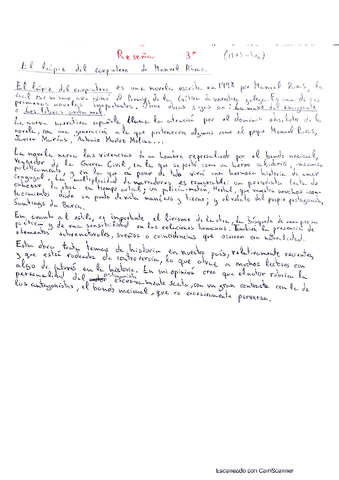 Reseña 3º
El lápiz del carpintero de Manuel Rivas.
El lápiz del carpintero es una novela escrita en 1998 por Manuel Rivas, la
cual ese mismo año ganó el Premio de la Crítica de narrativa gallega. Es una de sus
primeras novelas importantes. Otras obras suyas son
La nueva narrativa española llama la atención por el dominio absoluto de la
novela, con una generación a la que pertenecen algunos como el propio Manuel Rivas,
Javier Marías, Antonio Muñoz Molina...
La novela narra las vivencias de un hombre represaliado por el bando nacional,
vencedor de la Guerra Civil, en la que soportó como un héroe
políticamente, y en la que a pesar de todo vivió una hermosa historia de amor
conyugal. La multiplicidad de narradores es remarcable: un periodista trata de
la obra en tiempo actual; un policía-matón, Herbal, que muestra
desde un punto de vista y el relato del propio protagonista,
Da Barca.
En cuanto al estilo, es importante el lirismo de la obra, la búsqueda de
y de una sensibilidad en las relaciones humanas. También la presencia de
elementos sobrenaturales, sueños o coincidencias que ocurren con
Esta obra trata temas de historia en nuestro país, relativamente recientes,
y que están rodeados de controversia, lo que atrae a muchos lectores con
algo de interés en la historia. En mi opinión creo que el autor
personalidad del protagonista excesivamente santa, con un gran contraste con la de
los antagonistas, el bando nacional, que es excesivamente perversa.
Escaneado con CamScanner